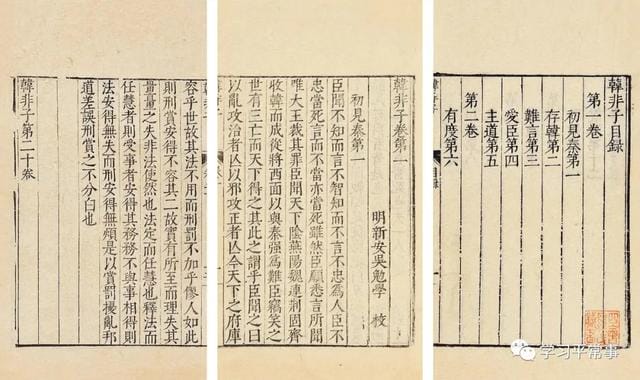 韓非子目録
第一卷
初見秦第一
存韓第二
難言第三
愛臣第四
主道第五
第二卷
有度第六
韓非子卷第一
明新安吳勉學 校
初見秦第一
臣聞不知而言不智知而不言不忠為人臣不
忠當死言而不當亦當死雖然臣願悉言所聞
唯大王裁其罪臣聞天下陰燕陽魏連荆固齊
收韓而成從將西面以與秦强為難臣竊笑之
世有三亡而天下得之其此之謂乎臣聞之曰
以亂攻治者亡以邪攻正者亡今天下之府庫
容乎世故其法不用而刑罰不加乎僇人如此
則刑賞安得不容其二故實有所至而理失其
量量之失非法使然也法定而任慧也釋法而
任慧者則受事者安得其務務不與事相得則
法安得無失而刑安得無煩是以賞罰擾亂邦
道差誤刑賞之不分白也
韓非子第二十卷
学习平常事